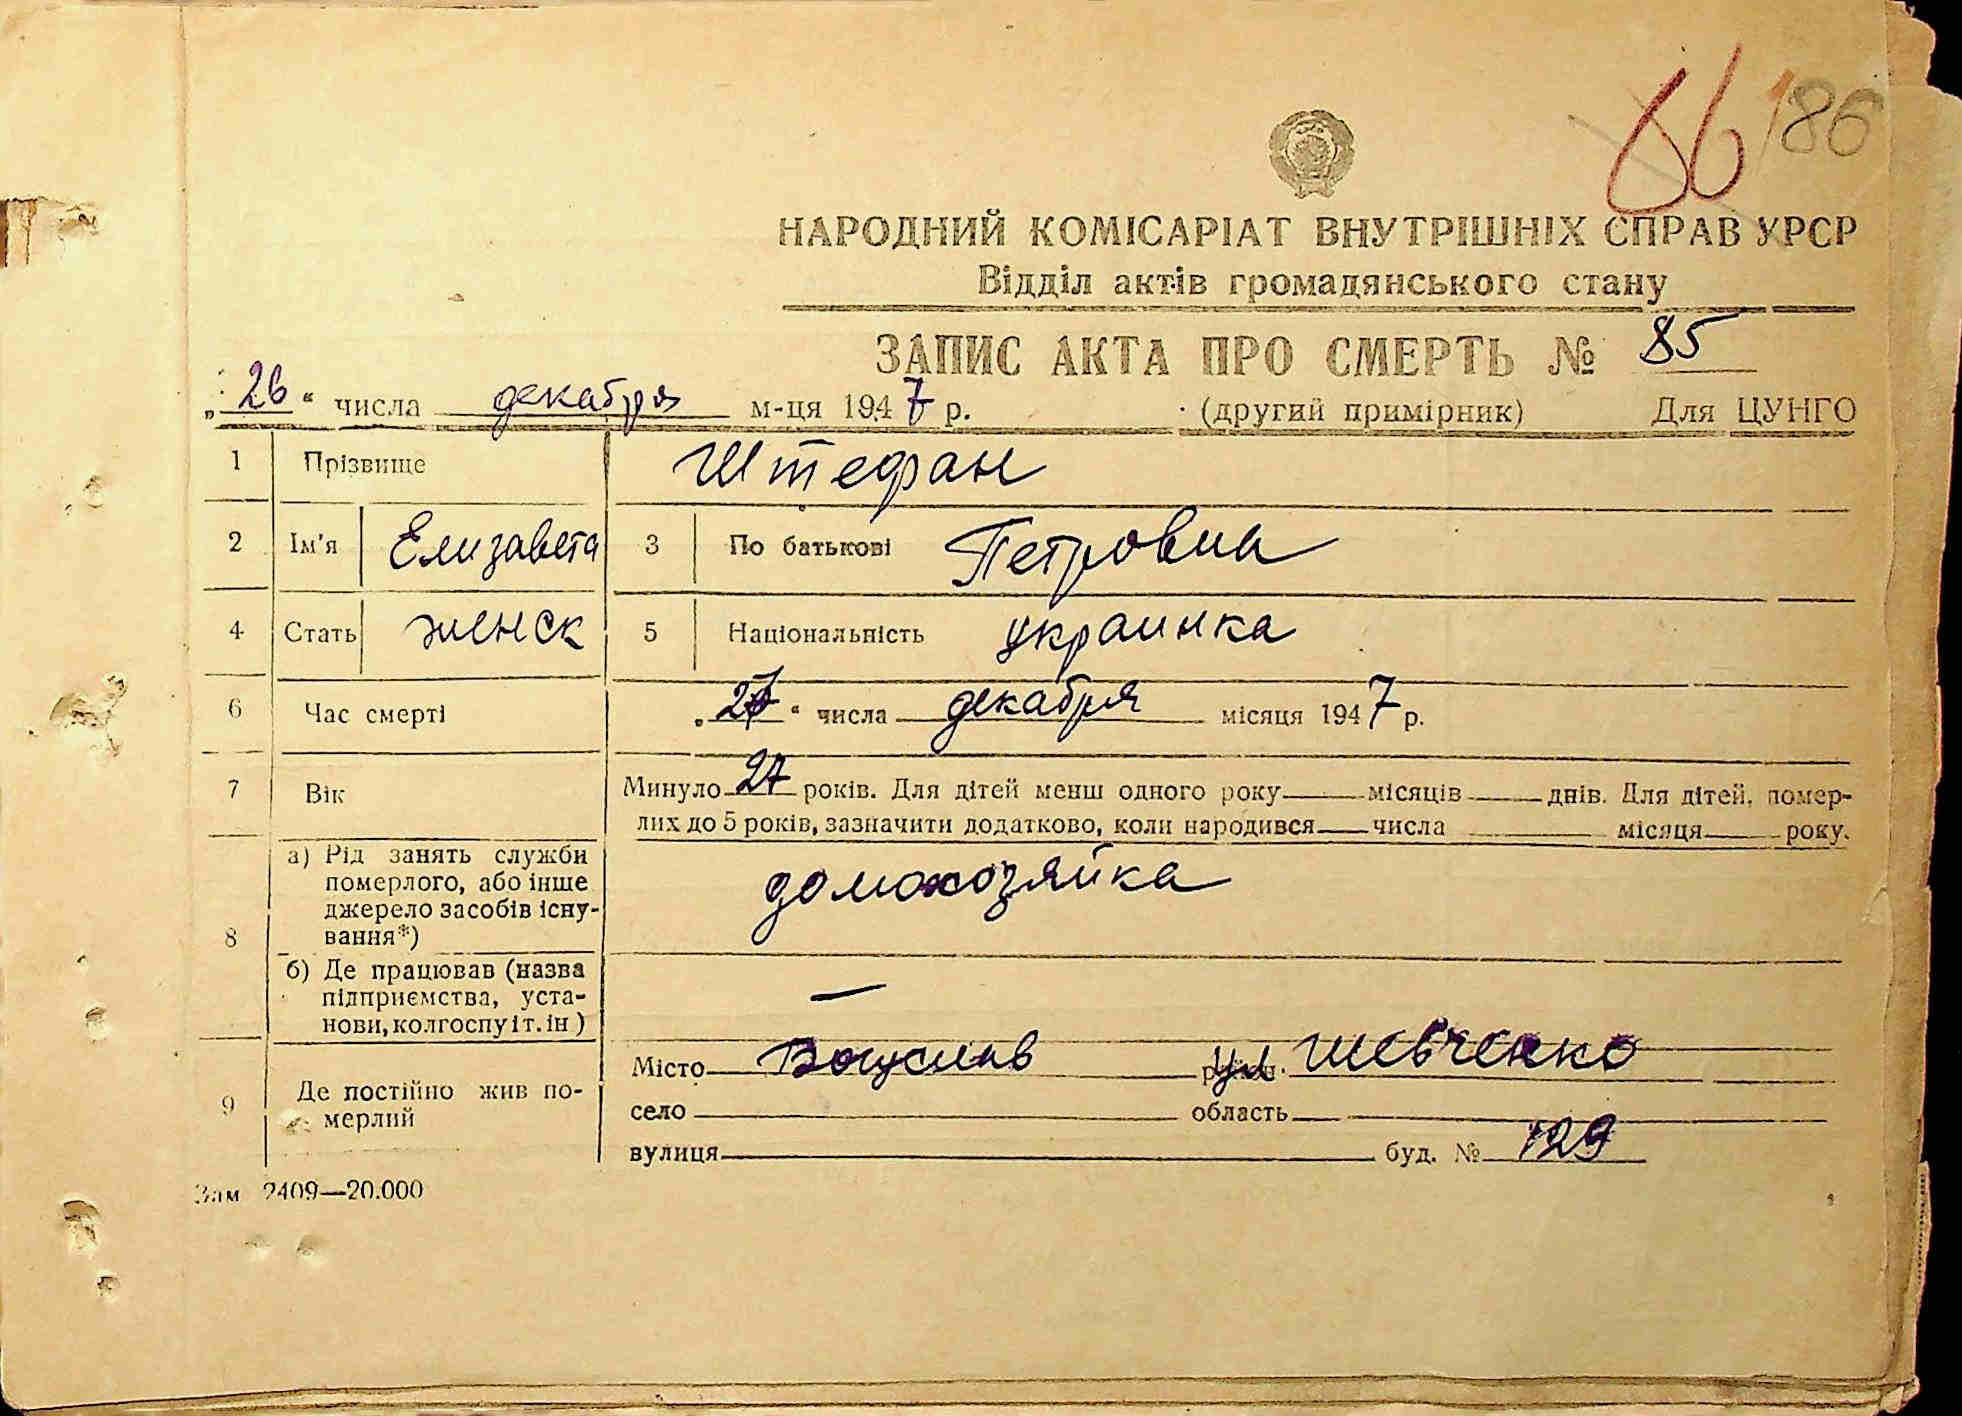 66 86
НАРОДНИЙ КОМІСАРІАТ ВНУТРІШНІХ СПРАВ УРСР
Відділ актів громадянського стану
ЗАПИС АКТА ПРО СМЕРТЬ № 85
„26“ числа декабря м-ця 1947 р. (другий примірник) Для ЦУНГО
1 Прізвище Штефан
2 Ім'я Елизавета 3 По батькові Петровна
4 Стать женск 5 Національність украинка
6 Час смерті „ “ числа декабря місяця 1947 р.
7 Вік Минуло 27 років. Для дітей менш одного року місяців днів. Для дітей, помер-
лих до 5 років, зазначити додатково, коли народився числа місяця року.
8 а) Рід занять служби
померлого, або інше
джерело засобів існу-
вання*)
домохозяйка
б) Де працював (назва
підприємства, уста-
нови, колгоспу і т. ін)
—
9 Де постійно жив по-
мерлий
Місто Богуслав ул Шевченко
село область
вулиця буд. № 129
Зам 2409—20.000